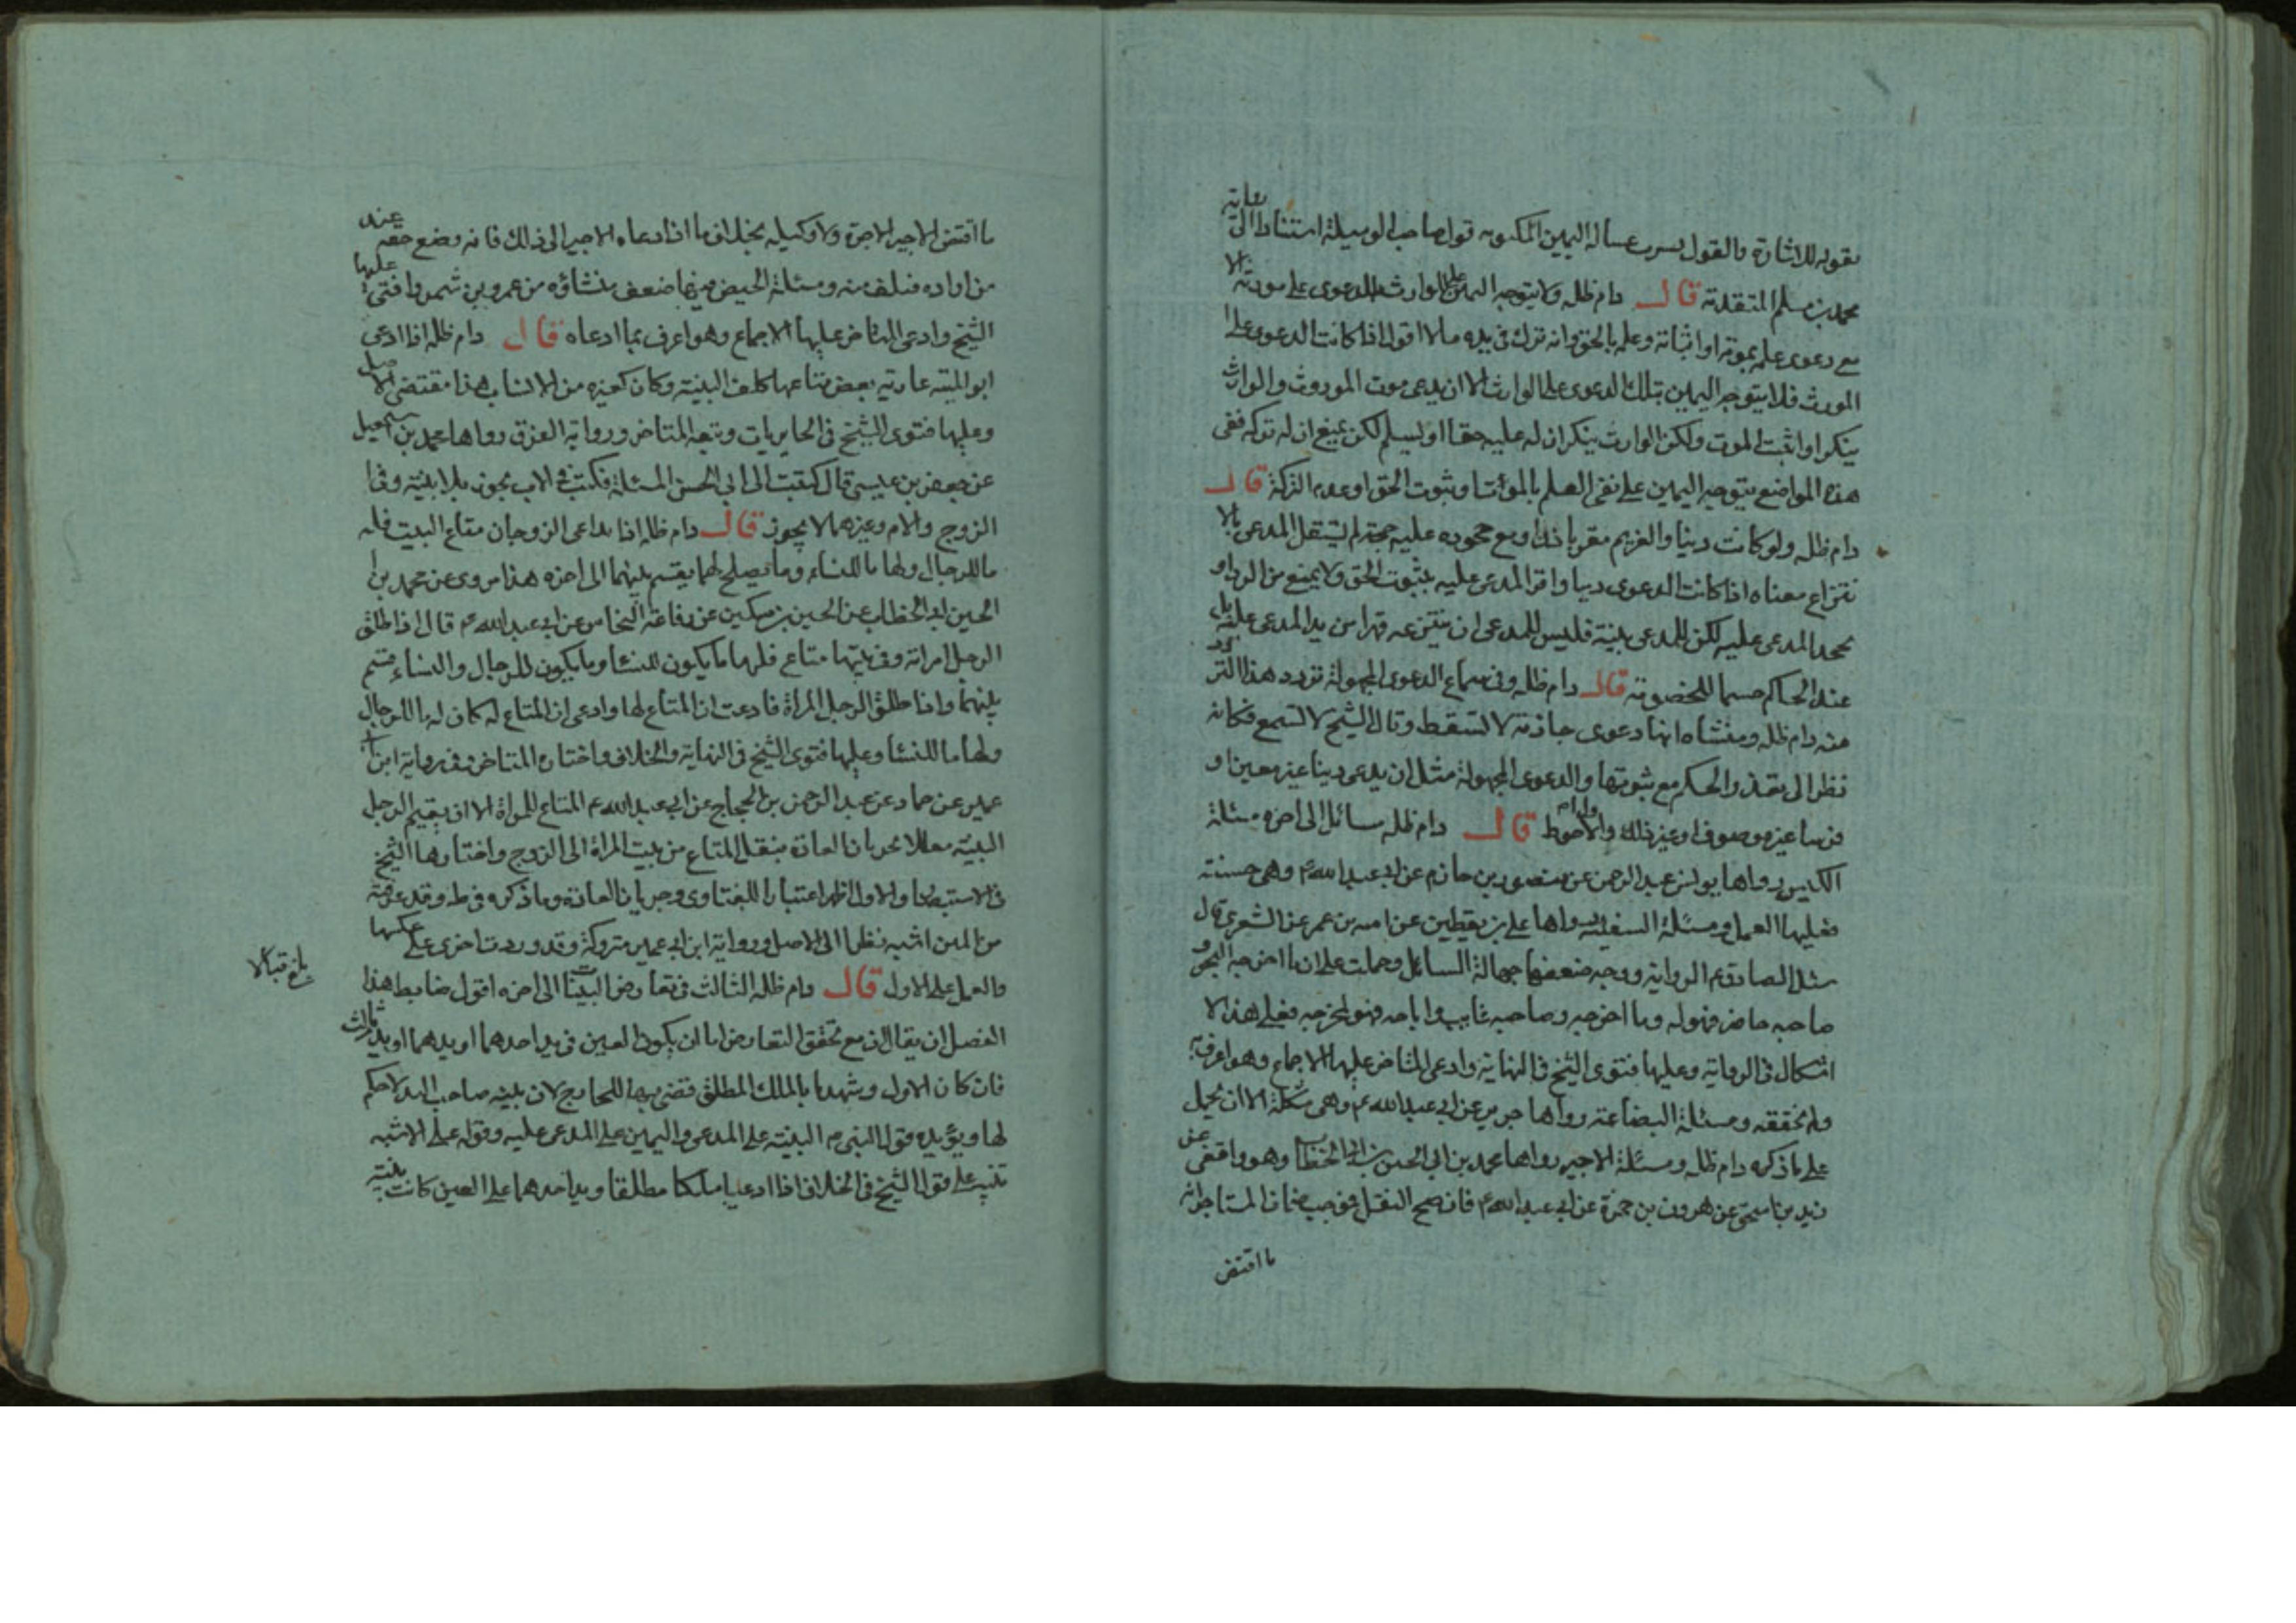 بقوله للاشارة والقول بسرب عسالة اليمين المكتوبه قول صاحب الوسيلة استنادا الى رواية
محمد بن مسلم المتقدمة قال دام ظله ولا يتوجه اليمين على الوارث بالدعوى على مورثه الا
مع دعوى علمه بموته او اثباته وعلمه بالحق وانه ترك في يده مالا اقول اذا كانت الدعوى على
المورث فلا يتوجه اليمين بتلك الدعوى على الوارث الا ان يدعى موت المورث والوارث
ينكر او اثبت الموت ولكن الوارث ينكر ان له عليه حقا او يسلم لكن يمنع ان له تركه ففي
هذه المواضع يتوجه اليمين على نفى العلم بالموت او ثبوت الحق او عدم التركة قال
دام ظله ولو كانت دينا والغريم مقر باذل او مع جحوده عليه حجة لم يستقل المدعى بالا
نتزاع معناه اذا كانت الدعوى دينا واقر المدعى عليه بثبوت الحق ولا يمنع من الرد او
يجحد المدعى عليه لكن للمدعى بينة فليس للمدعى ان ينتزعه قهرا من يد المدعى عليه بل
عند الحاكم حسما للخصومة قال دام ظله وفى سماع الدعوى المجهولة تردد هذا التردد
منه دام ظله ومنشاه انها دعوى جازمة لا تسقط وقال الشيخ لا تسمع فكانه
نظر الى تعذر الحكم مع ثبوتها والدعوى المجهولة مثل ان يدعى دينا غير معين او
فرسا غير موصوف او غير ذلك والاحوط قال دام ظله مسائل الى اخره مسئلة
الكيس رواها يونس عبد الرحمن عن منصور بن حازم عن ابي عبد الله ع وهي حسنة
فعليها العمل ومسئلة السفينة رواها على بن يقطين عن امية بن عمر عن الشعيرى قال
سئل الصادق ع الرواية ووجه ضعفها جهالة السائل وحملت على ان ما اخرجه البحر و
صاحبه حاضر فهو له وما اخرجه وصاحبه غايب واباحه فهو لمخرجه فعلى هذا لا
اشكال فى الرواية وعليها فتوى الشيخ فى النهاية وادعى المتاخر عليها الاجماع وهو اعرف به
ولم نحققه ومسئلة البضاعة رواها جرير عن ابي عبد الله ع وهى مشكلة الا ان يحمل
على ما ذكره دام ظله ومسئلة الاجير رواها محمد بن ابي الحسين بن ابي الخطاب وهو واقفي عن
زيد بن اسحق عن هرون بن حمزة عن ابي عبد الله ع فان صح النقل فموجب ضمان المستاجر انه
ما اقتضى
ما اقتضى الاجير الاجرة ولا وكيله بخلاف ما اذا دعاه الاجير الى ذلك فانه وضع حقه عند
من اراده فتلف منه ومسئلة الحيض فيها ضعف منشاؤه من عمرو بن شمر وافتى عليها
الشيخ وادعى المتاخر عليها الاجماع وهو اعرف بما ادعاه قال دام ظله اذا ادعى
ابو الميته عارية بعض متاعها كلف البينة وكان كغيره من الانساب هذا مقتضى الاصل
وعليها فتوى الشيخ فى الحايريات وتبعه المتاخر ورواية الفرق رواها محمد بن اسمعيل
عن جعفر بن عيسى قال كتبت الى ابي الحسن المسئلة فكتب في الاب يجوز بلا بينة وفى
الزوج والام وغيرهما لا يجوز قال دام ظله اذا تداعى الزوجان متاع البيت فله
ما للرجال ولها ما للنساء وما يصلح لهما يقسم بينهما الى اخره هذا مروى عن محمد بن
الحسين ابى الخطاب عن الحسين بن مسكين عن رفاعة النخاس عن ابى عبد الله ع قال اذا طلق
الرجل امراته وفى بيتها متاع فلها ما يكون للنسا وما يكون للرجال والنساء قسم
بينهما واذا طلق الرجل المراة فادعت ان المتاع لها وادعى ان المتاع له كان له ما للرجال
ولها ما للنسا وعليها فتوى الشيخ فى النهاية والخلاف واختاره المتاخر وفى رواية ابن ابى
عمير عن حماد عن عبد الرحمن بن الحجاج عن ابى عبد الله ع المتاع للمراة الا ان يقيم الرجل
البينه معللا بجريان العادة بنقل المتاع من بيت المراة الى الزوج واختارها الشيخ
فى الاستبصار والاول اظهر اعتبارا للفتاوى وجريان العادة وما ذكره فى ط وقد عرفته
من المتن اشبه نظرا الى الاصل ورواية ابن ابى عمير متروكة وقد وردت اخرى على عكسها
والعمل على الاول قال دام ظله الثالث فى تعارض البينات الى اخره اقول ضابط هذا
بلغ قبالا
الفصل ان يقال ان مع تحقق التعارض اما ان يكون العين فى يد احدهما او يدهما او يد ثالث
فان كان الاول وشهدتا بالملك المطلق قضى بها للخارج لان بينه صاحب اليد لا حكم
لها ويؤيده قول النبى ص البينة على المدعى واليمين على المدعى عليه وقوله على الاشبه
تنبيه على قول الشيخ فى الخلاف اذا ادعيا ملكا مطلقا ويد احدهما على العين كانت بينته